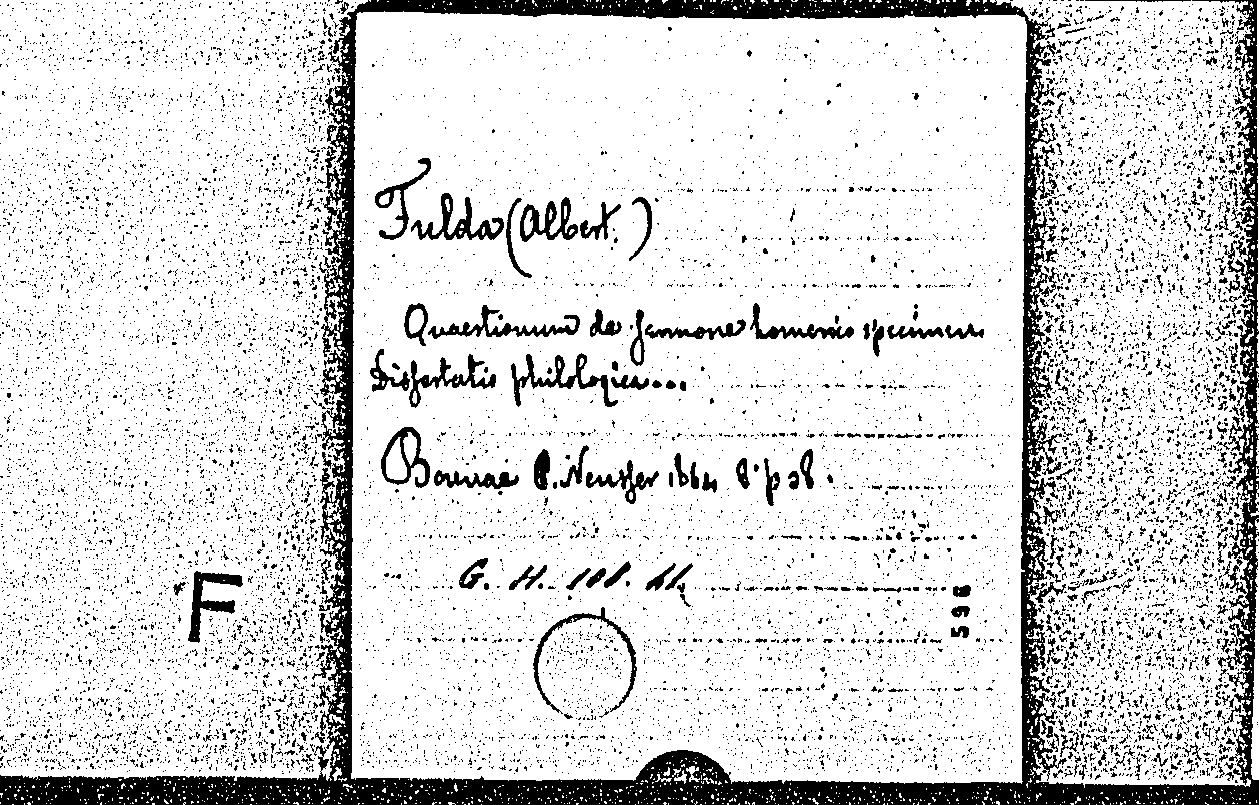 Fulda (Albert.)
Quaestionum de sermone homerico specimen
Dissertatio philologica...
Bonnae P. Neusser 1864 8° p 38.
G. H.
F
596